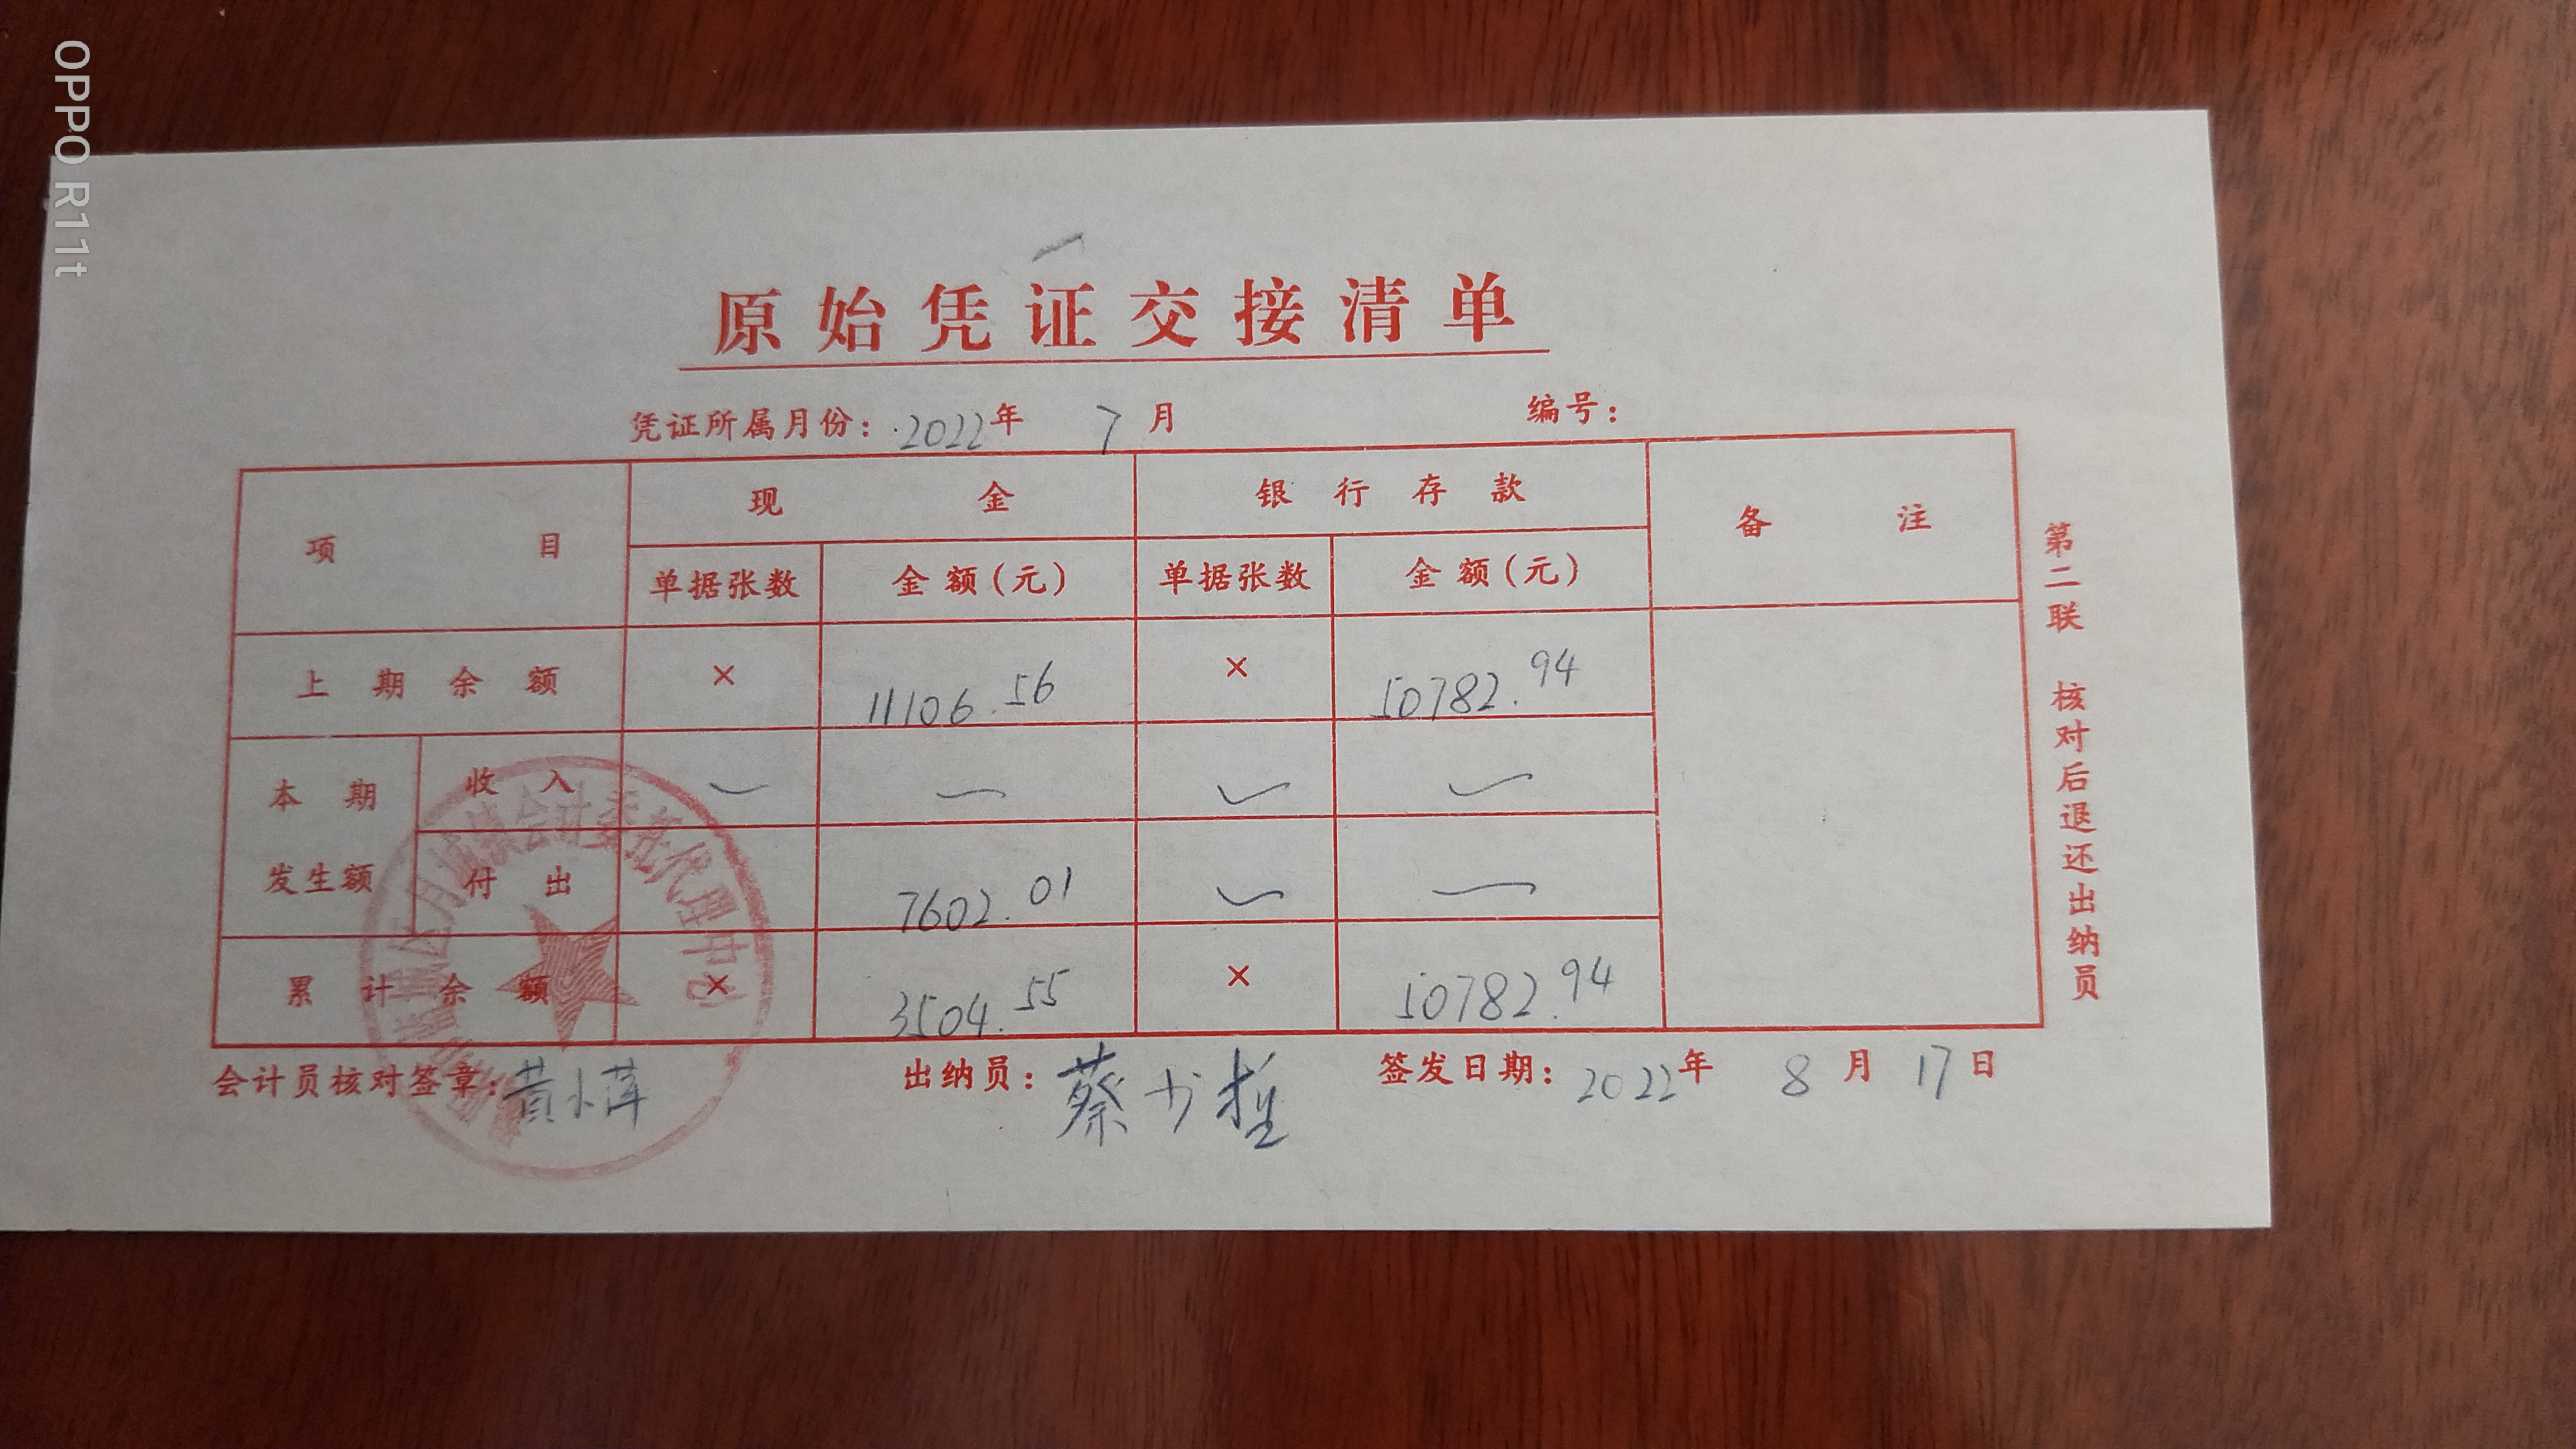 OPPO R11t
原始凭证交接清单
凭证所属月份：2022年 7 月 编号：
项目 现金 银行存款 备注
单据张数 金额(元) 单据张数 金额(元)
上期余额 × 11106.56 × 50782.94
本期发生额 收入
付出 7602.01
累计余额 × 3504.55 × 50782.94
会计员核对签章：黄小萍 出纳员：蔡少 签发日期：2022年 8 月 17日
第二联 核对后退还出纳员
月城镇会计委托代理中心